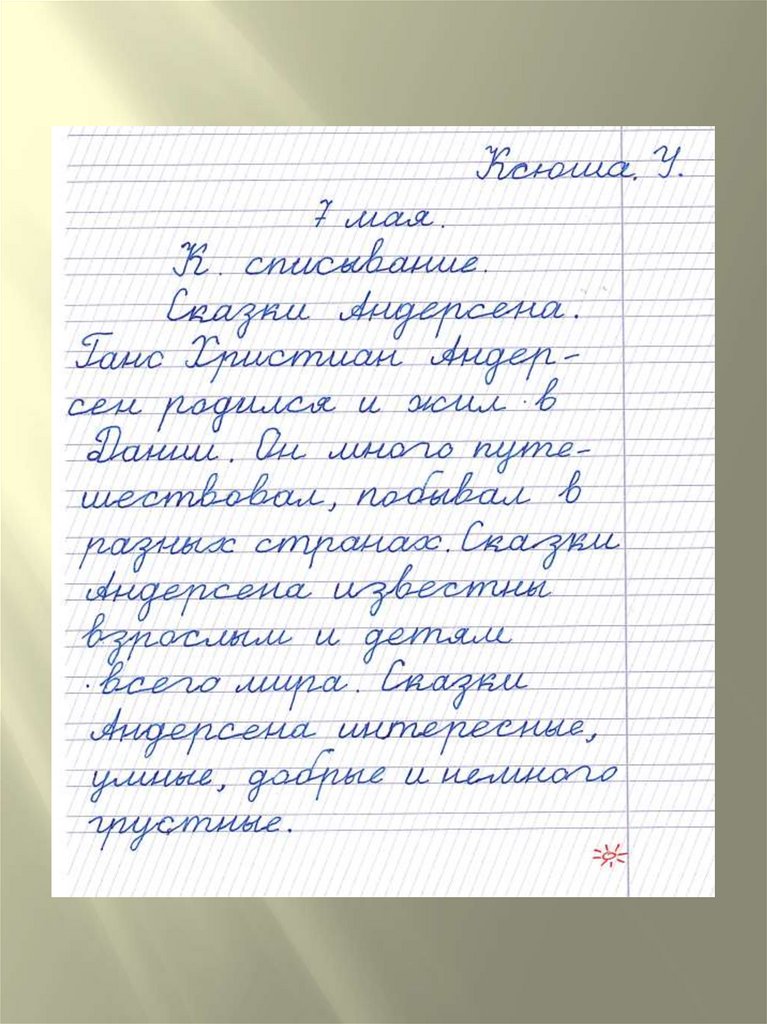 Ксюша. У.
7 мая.
К. списывание.
Сказки Андерсена.
Ганс Христиан Андер-
сен родился и жил в
Дании. Он много путе-
шествовал, побывал в
разных странах. Сказки
Андерсена известны
взрослым и детям
всего мира. Сказки
Андерсена интересные,
умные, добрые и немного
грустные.